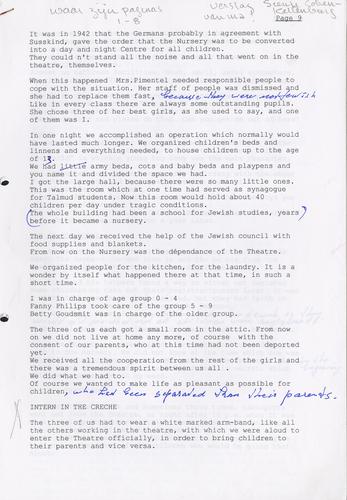 waar zijn paginas
1-8
verslag
van ma?
Sieny Cohen-
Kattenburg
Page 9
It was in 1942 that the Germans probably in agreement with
Susskind, gave the order that the Nursery was to be converted
into a day and night Centre for all children.
They could n't stand all the noise and all that went on in the
theatre, themselves.
When this happened  Mrs.Pimentel needed responsible people to
cope with the situation. Her staff of people was dismissed and
she had to replace them fast, because they were not Jewish
Like in every class there are always some outstanding pupils.
She chose three of her best girls, as she used to say, and one
of them was I.
In one night we accomplished an operation which normally would
have lasted much longer. We organized children's beds and
linnens and everything needed, to house children up to the age
of 13.
We had little army beds, cots and baby beds and playpens and
you name it and divided the space we had.
I got the large hall, because there were so many little ones.
This was the room which at one time had served as synagogue
for Talmud students. Now this room would hold about 40
children per day under tragic conditions.
(The whole building had been a school for Jewish studies, years)
before it became a nursery.
The next day we received the help of the Jewish council with
food supplies and blankets.
From now on the Nursery was the dépendance of the Theatre.
We organized people for the kitchen, for the laundry. It is a
wonder by itself what happened there at that time, in such a
short time.
I was in charge of age group 0 - 4
Fanny Philips took care of the group 5 - 9
Betty Goudsmit was in charge of the older group.
The three of us each got a small room in the attic. From now
on we did not live at home any more, of course  with the
consent of our parents, who at this time had not been deported
yet.
We received all the cooperation from the rest of the girls and
there was a tremendous spirit between us all .
We did what we had to.
Of course we wanted to make life as pleasant as possible for
children, who had been separated than their parents.
INTERN IN THE CRECHE
The three of us had to wear a white marked arm-band, like all
the others working in the theatre, with which we were aloud to
enter the Theatre officially, in order to bring children to
their parents and vice versa.